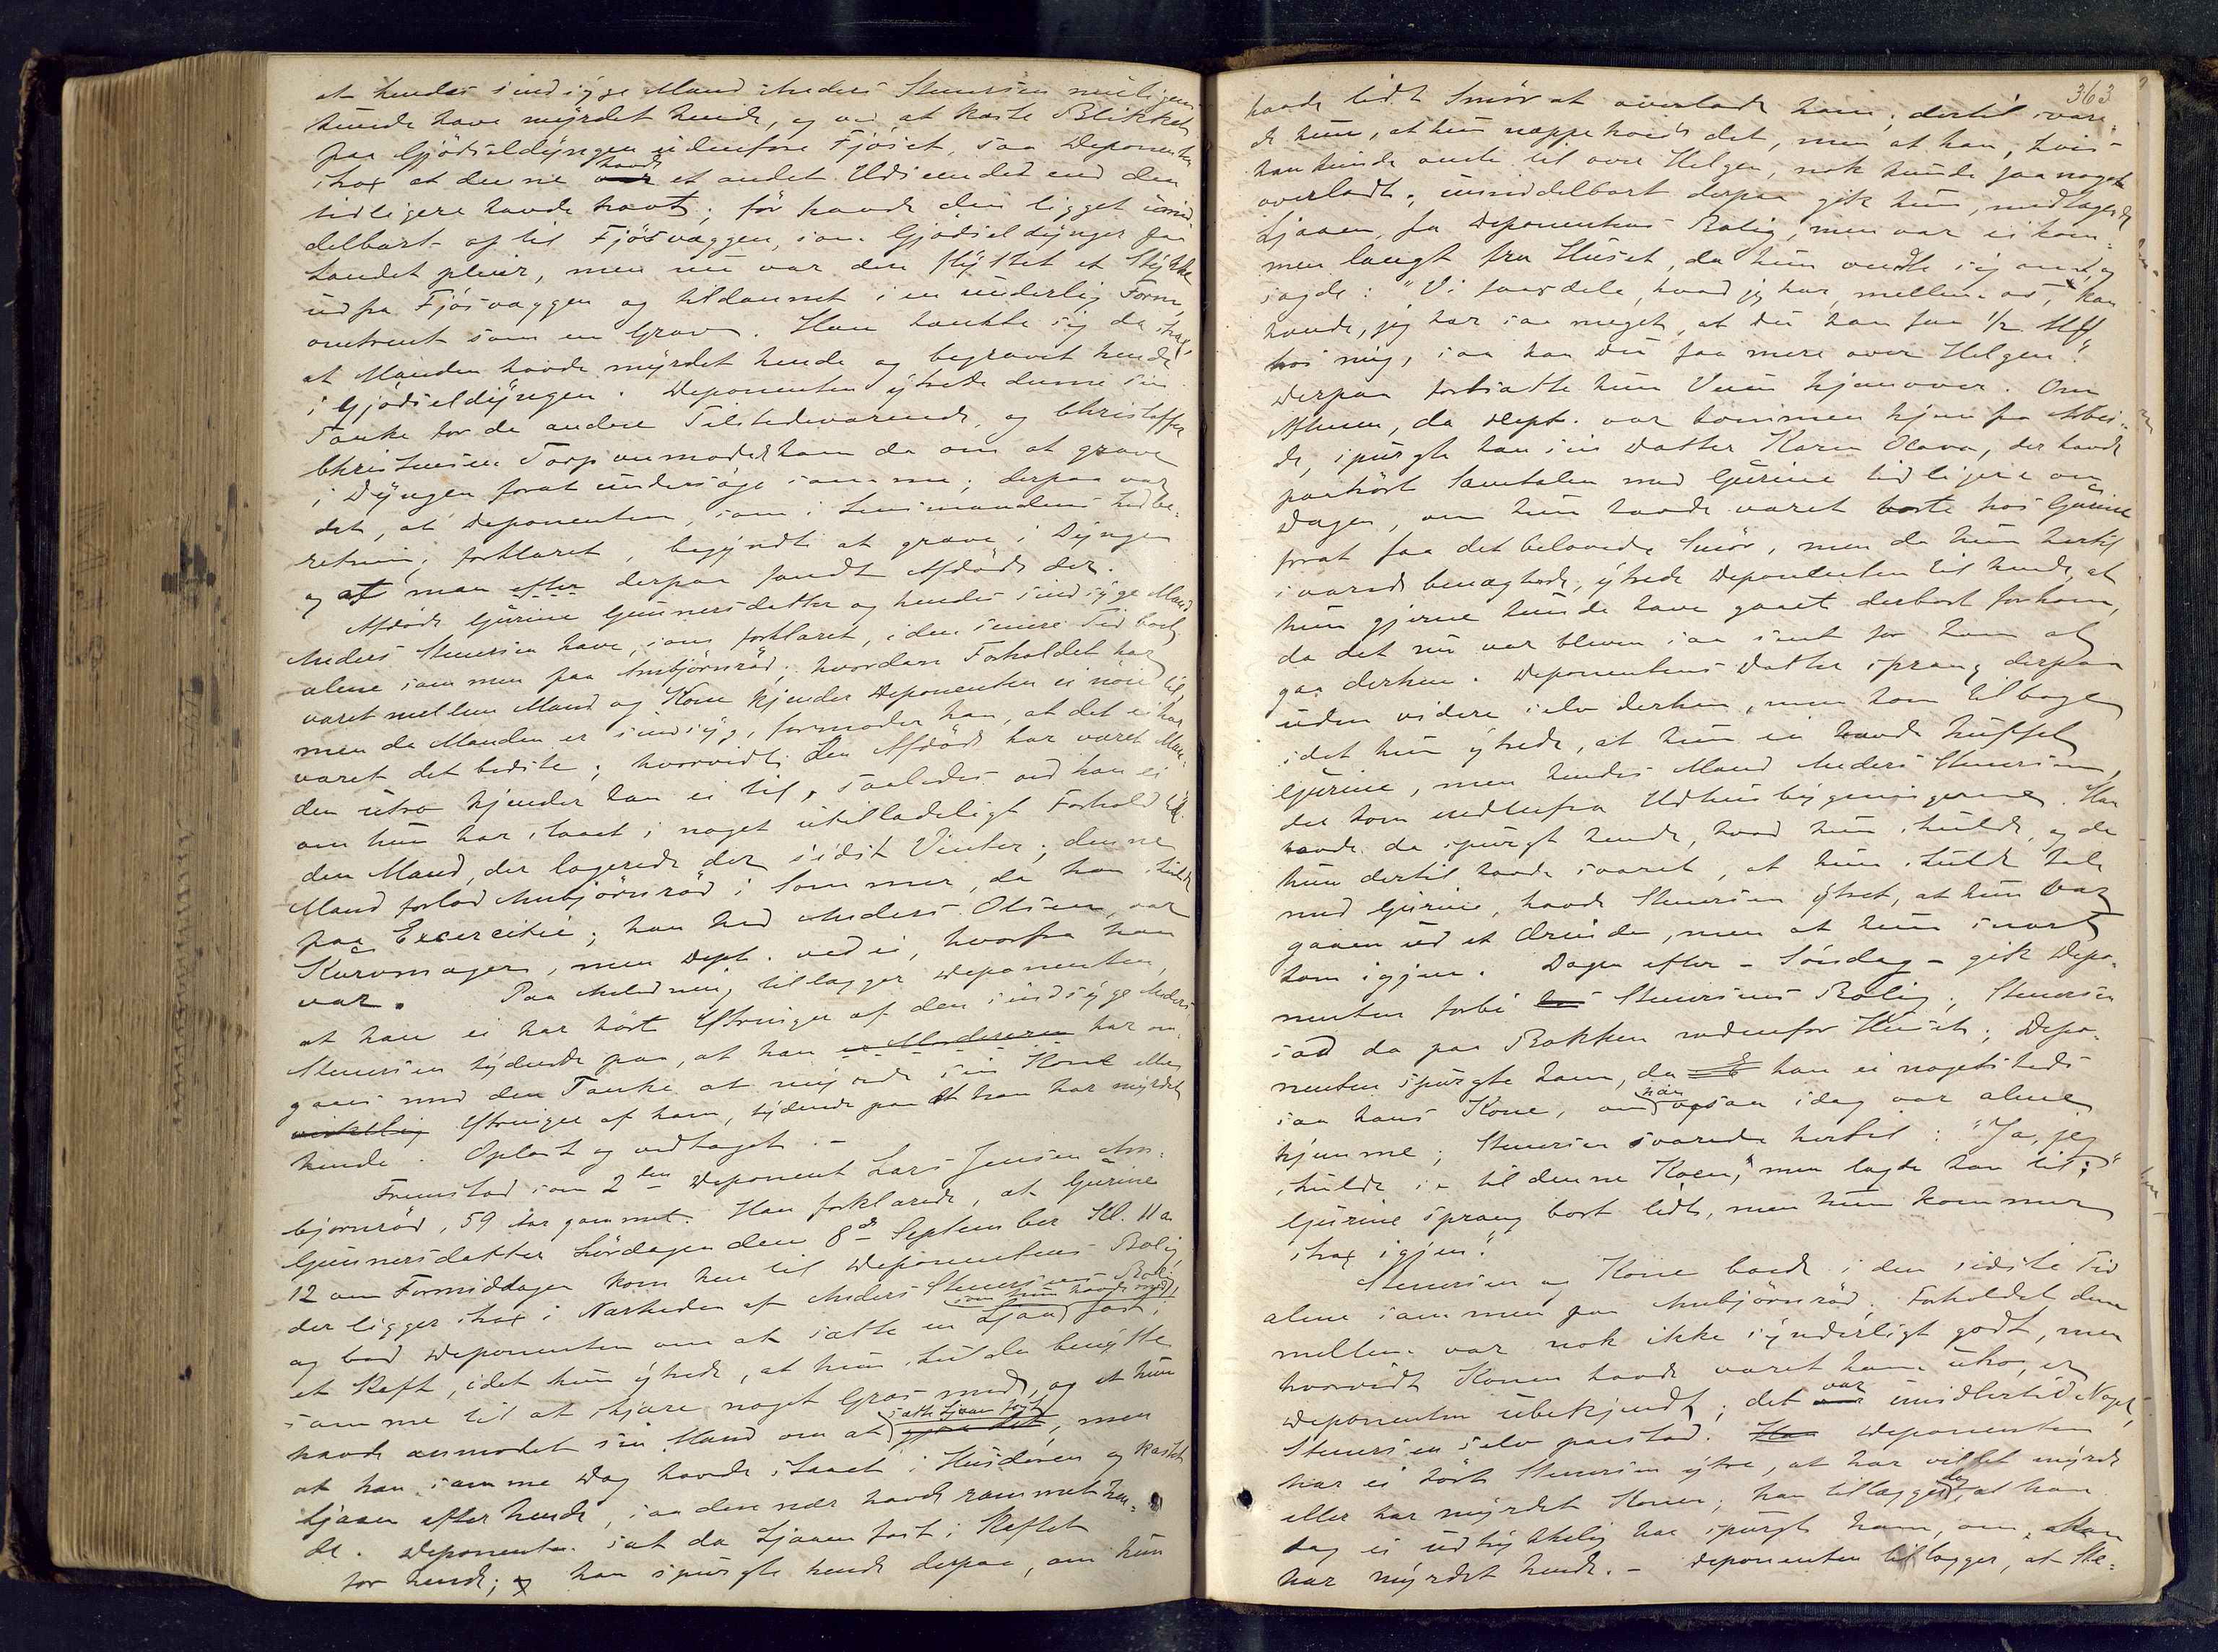 at hendes sindsyge Mand Anders Stenersen muligens
kunde have myrdet hende, og ved at kaste Blikket
paa Gjödseldyngen udenfore Fjöset, saa Deponenten
strax at denne havde et andet Udseende end den
tidligere havde havt; för havde den ligget umid
delbart op til Fjösvæggen, som Gjödseldynger paa
Landet pleier, men nu var den flyttet et Stykke
ud fra Fjösvæggen og uddannet i en underlig Form,
omtrent som en Grav. Han tænkte sig da strax,
at Manden havde myrdet hende og begravet hende
i Gjödseldyngen. Deponenten ytrede denne sin
Tanke for de andre Tilstedeværende, og Christoffer
Christensen Torp anmodede ham da om at grave
i Dyngen forat undersöge samme; derpaa var
det, at Deponenten, som i Lensmandens Indbe-
retning forklaret, begyndte at grave i Dyngen
og at man efter derpaa fandt Afdöde der.
Afdöde Gurine Gunnersdatter og hendes sindsyge Mand
Anders Stenersen have, som forklaret, i den senere Tid boet
alene sammen paa Anbjörnsröd; hvordan Forholdet har
været mellem Mand og Kone kjender Deponenten ei nöie til,
men da Manden er sindsyg, formoder han, at det ei har
været det bedste; hvorvidt den Afdöde har været Man-
den utro kjender han ei til, saaledes ved han ei
om hun har staaet i noget utilladeligt Forhold til
den Mand, der logerede der sidst Vinter; denne
Mand forlod Anbjörnsröd i Sommer, da han skulde
paa Excercitie; han hed Anders Olsen, var
Kurvmager, men Dept. ved ei, hvorfra han
var. Paa Anledning tillægger Deponenten,
at han ei har hört Ytringer af den sindsyge Anders
Stenersen tydende paa, at han er Morderen har om-
gaaes med den Tanke at myrde sin Kone eller
Ytringer af ham, tydende paa at han har myrdet
hende. Oplæst og vedtaget. -
Fremstod som 2den Deponent Lars Jensen An-
björnsröd, 59 Aar gammel. Han forklarede, at Gurine
Gunnersdatter Lördagen den 8de September Kl. 11 a
12 om Formiddagen kom hen til Deponentens Bolig
der ligger strax i Nærheden af Anders Stenersens Bolig
som hun havde med
og bad Deponenten om at sætte en Ljaa fast i
et Skeft, idet hun ytrede, at hun skulde benytte
samme til at skjære noget Græs med, og at hun
havde anmodet sin Mand om at sætte Ljaaen fast, men
at han samme Dag havde staaet i Husdören og kastet
Ljaaen efter hende, saa den nær havde rammet hen-
de. Deponenten sat da Ljaaen fast i Skeftet
for hende; og han spurgte hende derpaa, om hun
363
havde lidt Smör at overlade ham; dertil svare-
de hun, at hun neppe havde det, men at han, hvis
han kunde vente til over Helgen, nok kunde faa noget
overladt; umiddelbart derpaa gik hun, medtagende
Ljaaen, fra Deponentens Bolig, men var ei kom-
men langt fra Huset, da hun vendte sig om og
sagde: "Vi faar dele, hvad jeg har, mellem os, kan
hænde, jeg har saa meget, at Du kan faa 1/2 Mk
hos mig, saa kan Du faa mere over Helgen".
Derpaa fortsatte hun Veien hjemover. Om
Aftenen, da Dept. var kommen hjem fra Arbei-
de, spurgte han sin Datter Karen Olava, der havde
paahört Samtalen med Gurine tidligere om
Dagen, om hun havde været borte hos Gurine
forat faa det belovede Smör, men da hun hertil
svarede benægtende, ytrede Deponenten til hende, at
hun gjerne kunde have gaaet derbort for ham,
da det nu var bleven saa sent for ham at
gaa derhen. Deponentens Datter sprang derpaa
uden videre selv derhen, men kom tilbage
idet hun ytrede, at hun ei havde truffet
Gurine, men hendes Mand Anders Stenersen,
der kom nedenfra Udhusbygningerne. Han
havde da spurgt hende, hvad hun skulde, og da
hun dertil havde svaret, at hun skulde tale
med Gurine, havde Stenersen ytret, at hun var
gaaen ud et Ærinde, men at hun snart
kom igjen. Dagen efter - Söndag - gik Depo-
nenten forbi Stenersens Bolig; Stenersen
sad da paa Bakken nedenfor Huset; Depo-
nenten spurgte ham, da han ei nogetsteds
saa hans Kone, om han ogsaa idag var alene
hjemme; Stenersen svarede hertil: "Ja, jeg
skulde se til denne Koen," men lagde han til: "
Gurine sprang bort lidt, men hun kommer
strax igjen".
Stenersen og Kone boede i den sidste Tid
alene sammen paa Anbjörnsröd. Forholdet dem
mellem var nok ikke synderligt godt, men
hvorvidt Konen havde været ham utro, er
Deponenten ubekjendt; det var imidlertid Noget,
Stenersen selv paastod. Deponenten
har ei hört Stenersen ytre, at har villet myrde
eller har myrdet Konen; han tillægger dog, at han
dog ei udtrykkelig har spurgt ham, om han
har myrdet hende. - Deponenten tillægger, at Ste-